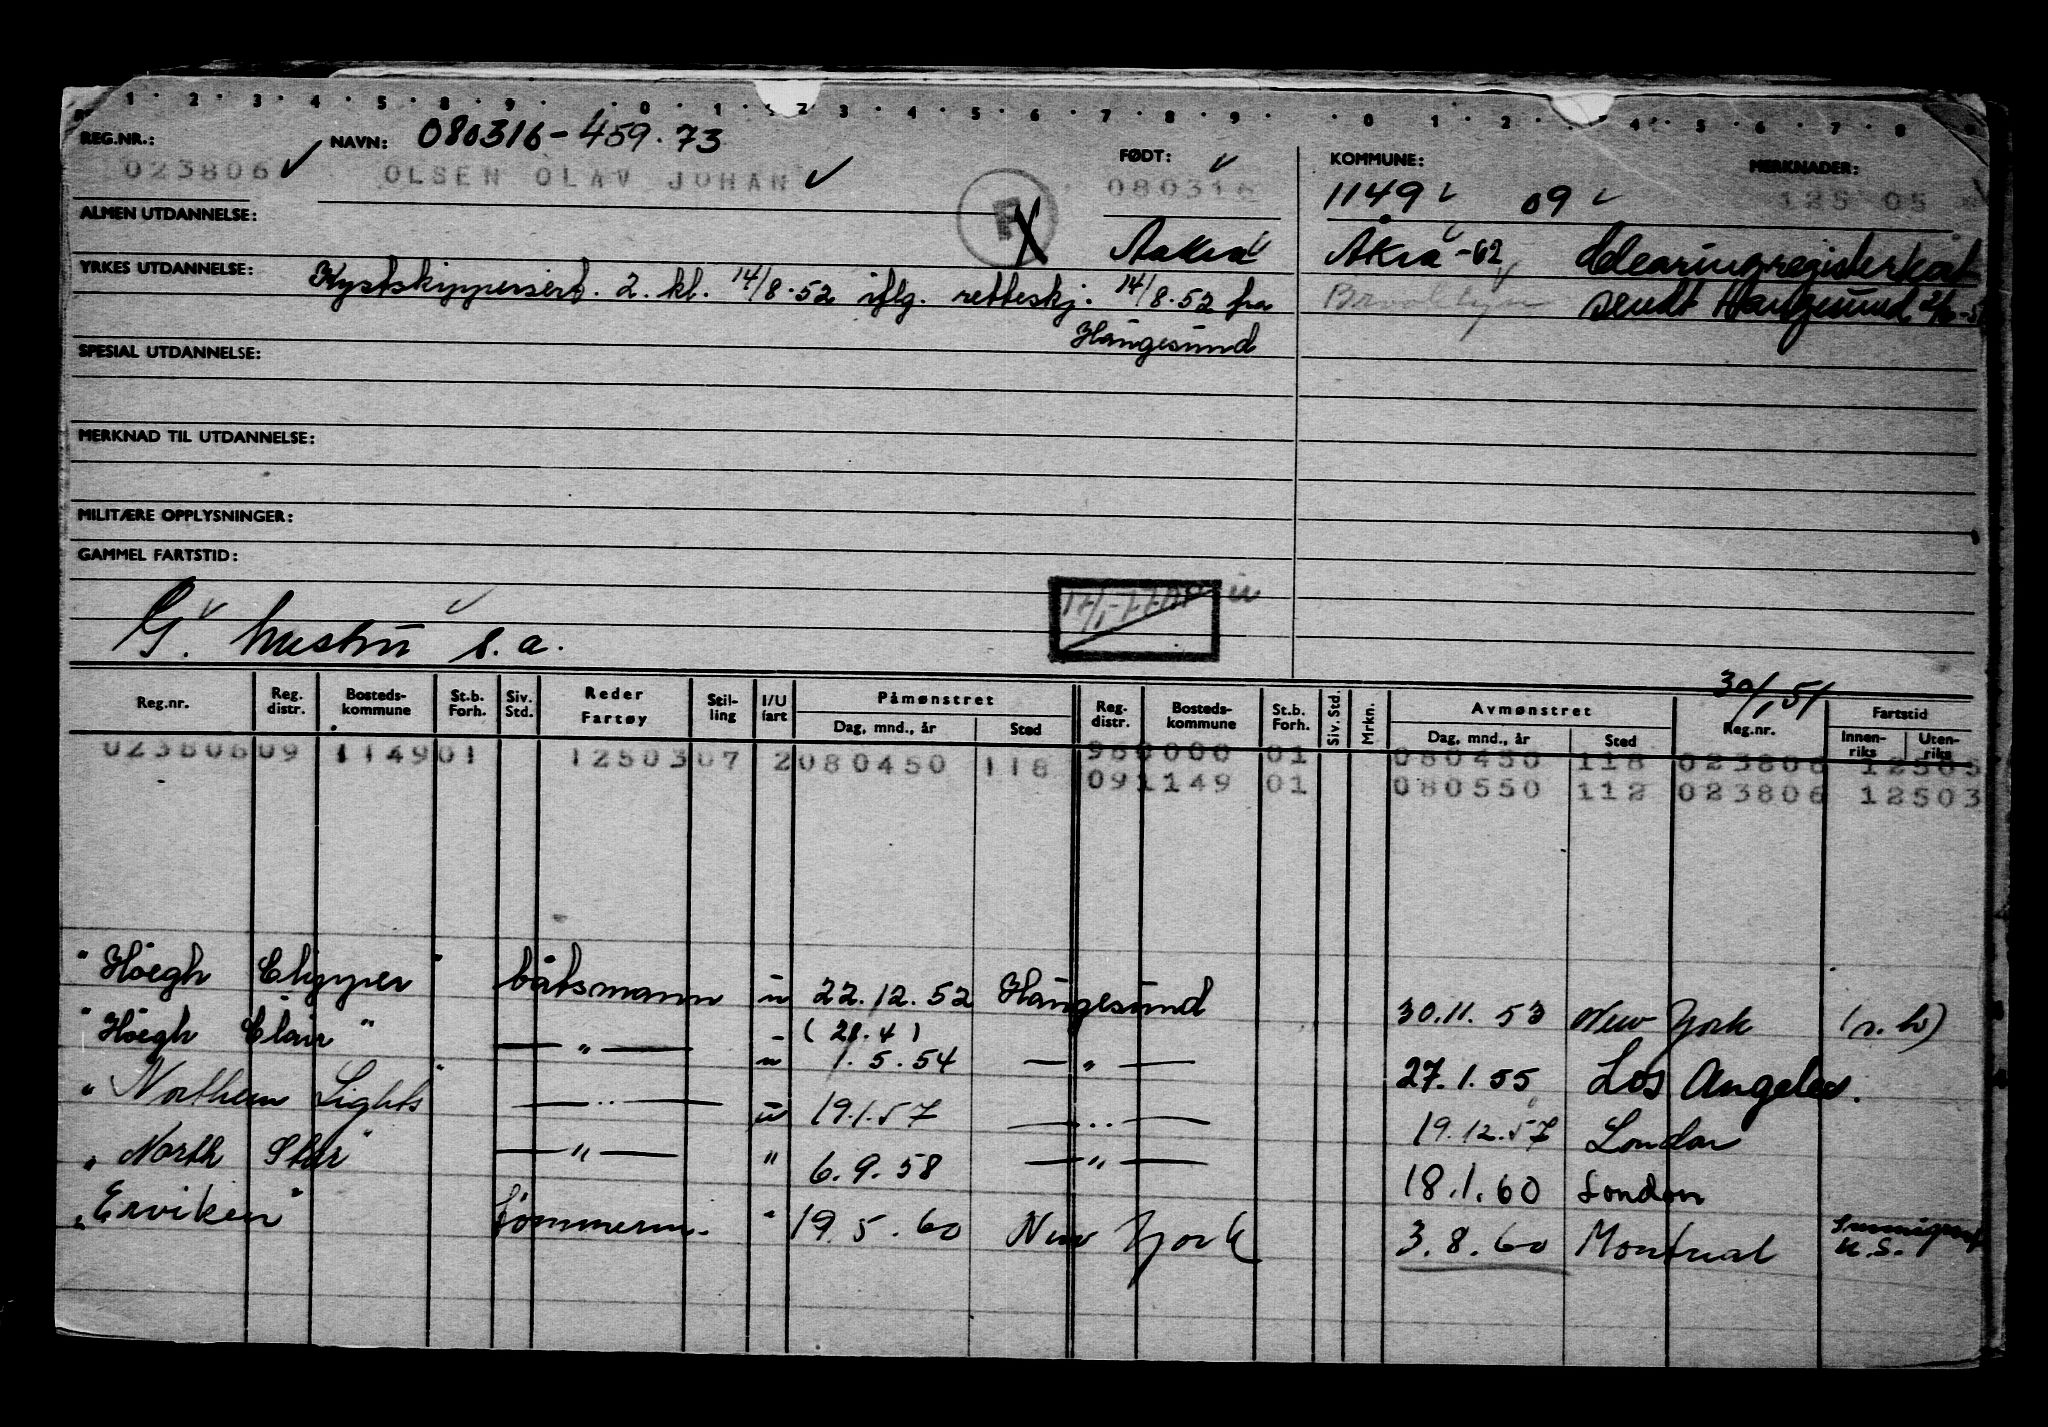 1 2 3 4 5 8 9 0 1 2 3 4 5 6 7 8 9 0 1 2 3 4 5 6 7 8
REG.NR.: NAVN: 080316-459.73 FØDT: KOMMUNE: MERKNADER:
023806 OLSEN OLAV JOHAN 080316 1149 09 125 05
ALMEN UTDANNELSE: F Aakra Åkra -62 Clearingregisterkort
YRKES UTDANNELSE: Kystskippersert. 2. kl. 14/8.52 iflg. retteskj. 14/8.52 fra Brooklyn sendt Haugesund
Haugesund
SPESIAL UTDANNELSE:
MERKNAD TIL UTDANNELSE:
MILITÆRE OPPLYSNINGER:
GAMMEL FARTSTID:
G. hustru s.a.
30/1 51
Reg.nr. Reg. distr. Bosteds-kommune St.b. Forh. Siv. Std. Reder Fartøy Stil-ling I/U fart Påmønstret Dag, mnd., år Sted Reg. distr. Bosteds-kommune St.b. Forh. Siv. Std. Mrkn. Avmønstret Dag, mnd., år Sted Reg.nr. Fartstid Innen-riks Uten-riks
023806 09 1149 01 12503 07 2 080450 118 98 0000 01 080450 118 023806 12505
09 1149 01 080550 112 023806 12503
"Höegh Clipper" båtsmann u 22.12.52 Haugesund 30.11.53 New York
"Höegh Clair" — " — u (28.4) 1.5.54 — " — 27.1.55 Los Angeles.
"Northern Lights" — " — u 19.1.57 — " — 19.12.57 London
"North Star" — " — " 6.9.58 — " — 18.1.60 London
"Erviken" tømmerm. " 19.5.60 New York 3.8.60 Montreal U.S.